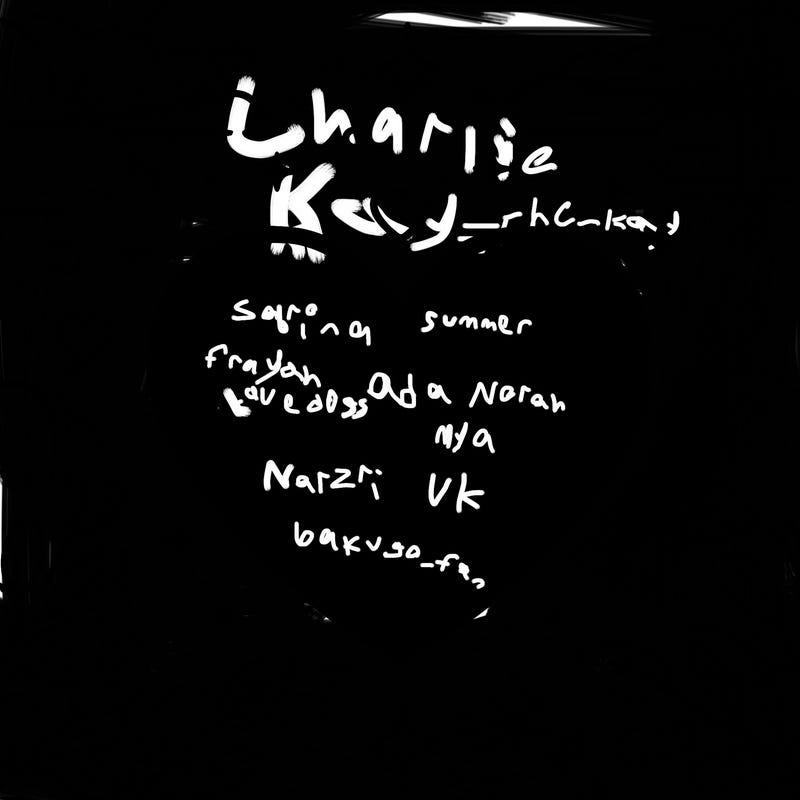 Charlie
Kay_rhc_kay
sarina summer
frayah
Ada Norah
mya
Narzri VK
bakugo_fan